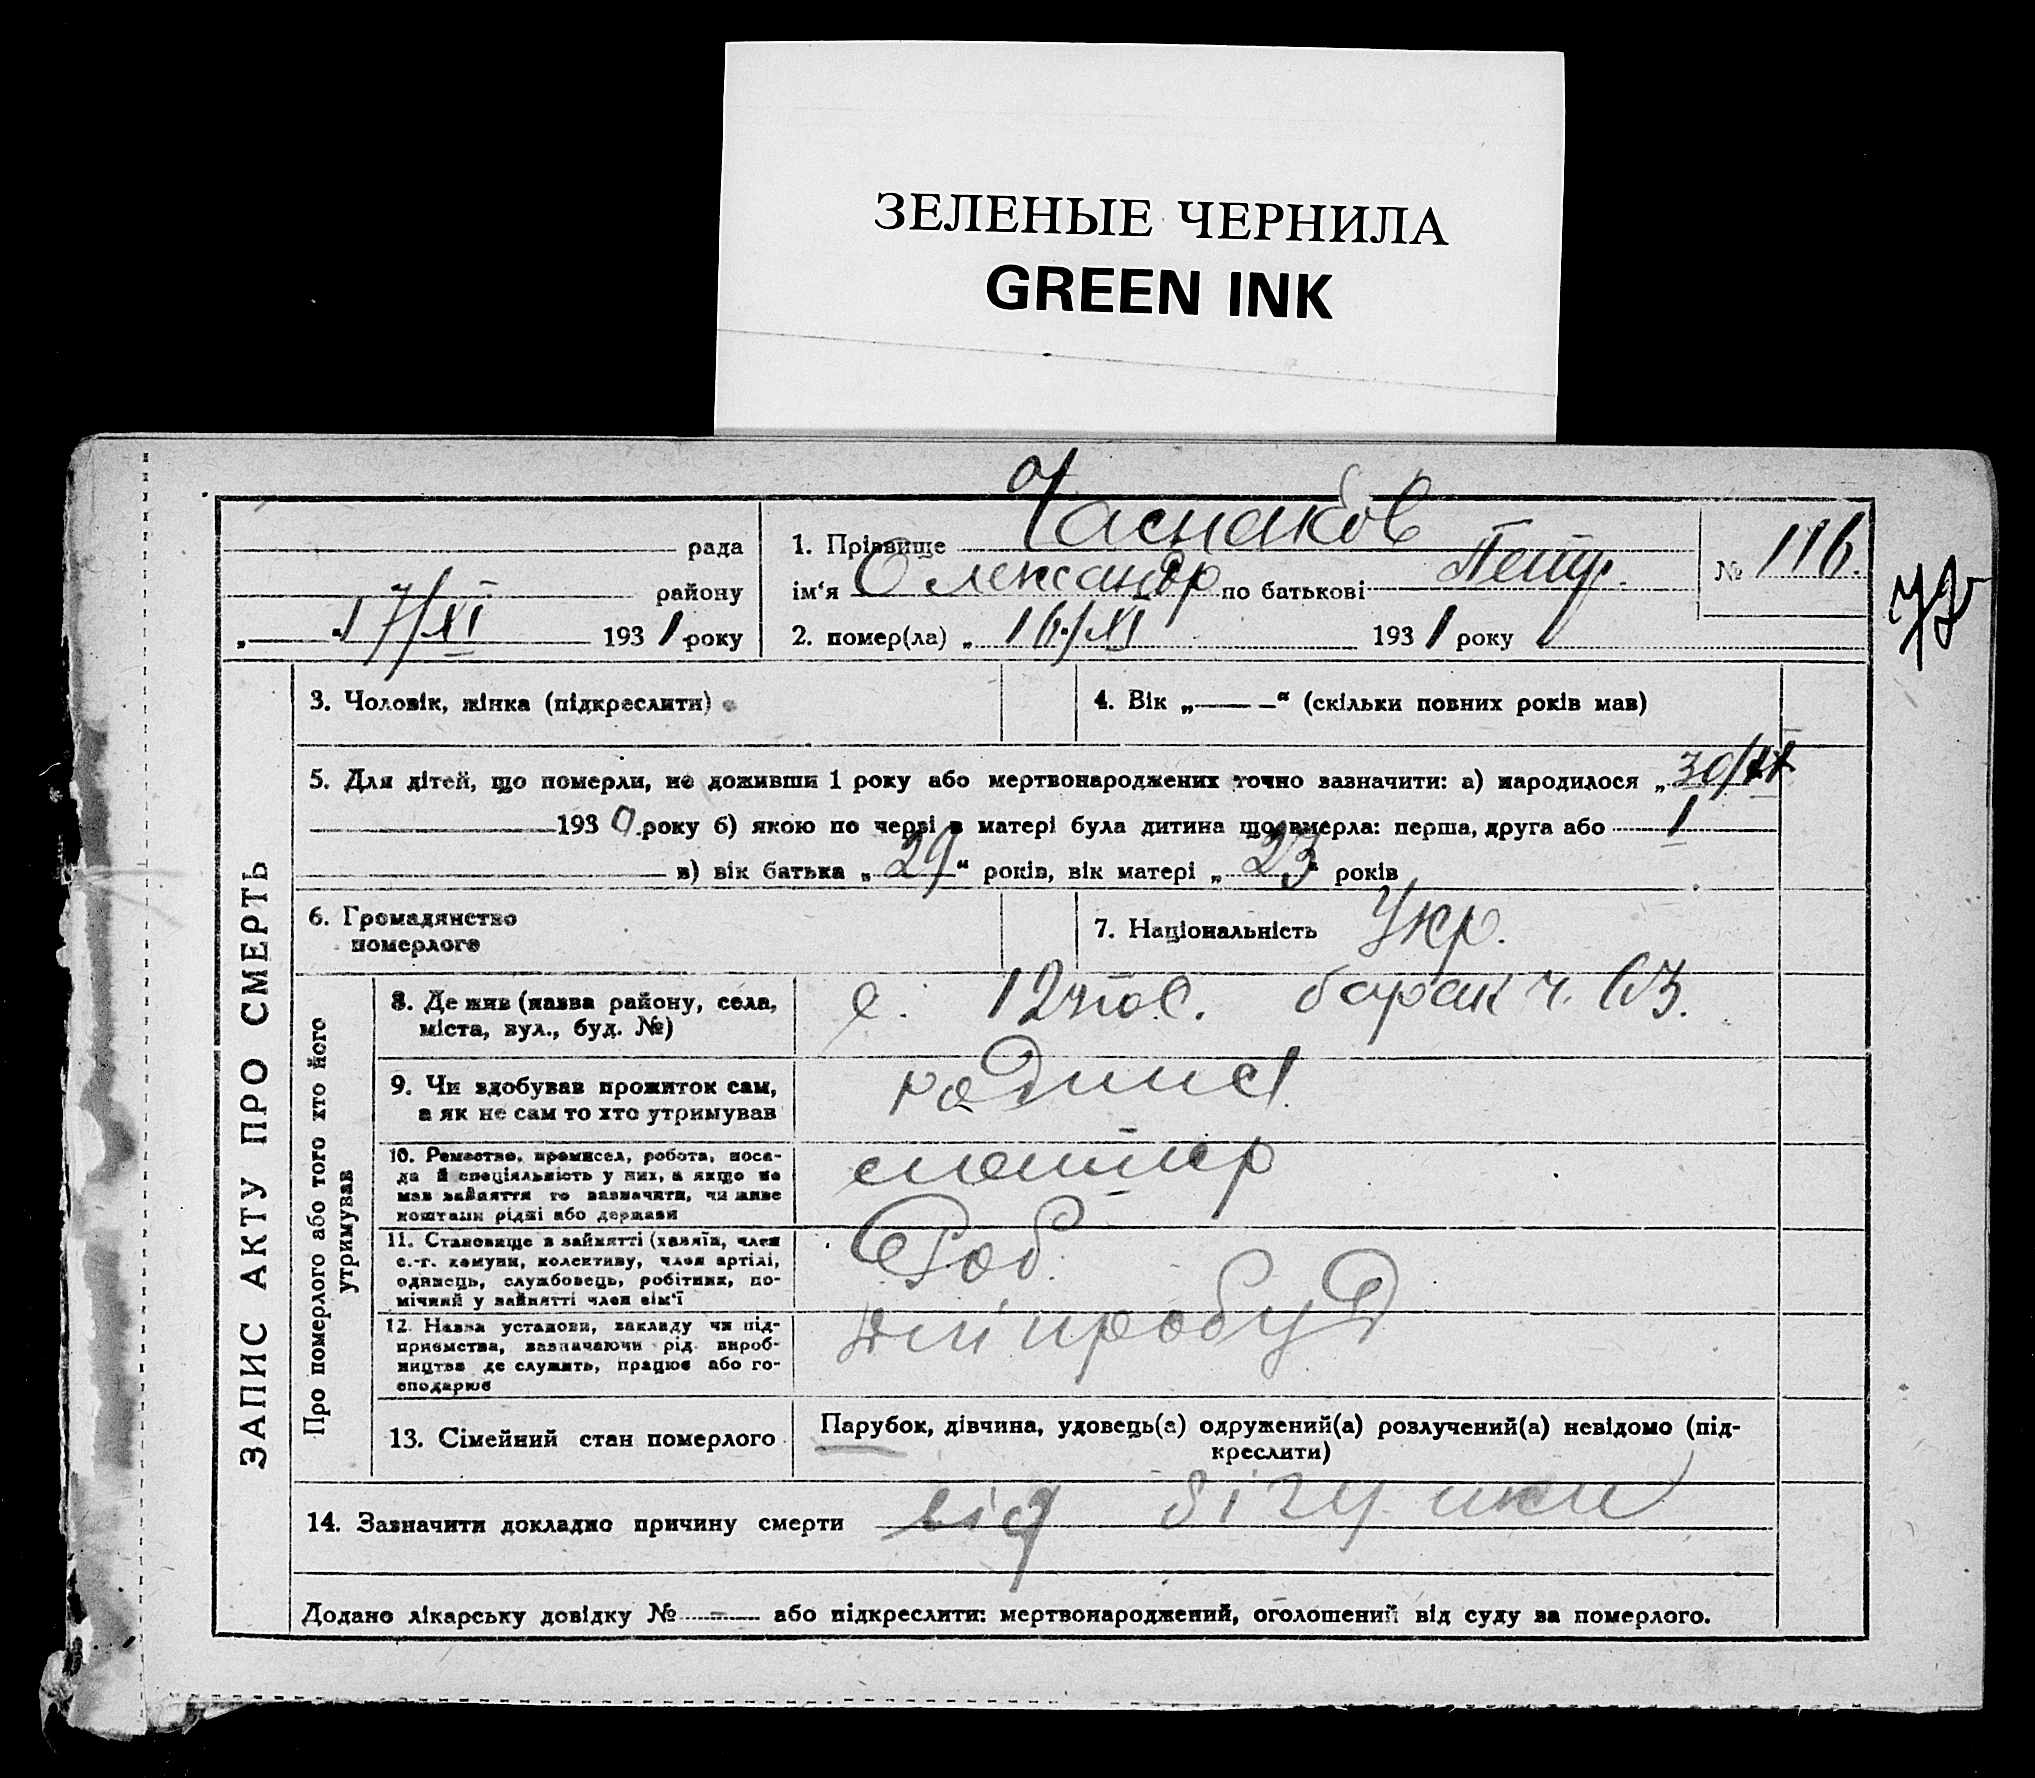 ЗЕЛЕНЫЕ ЧЕРНИЛА
GREEN INK
рада
району
„ 17/XI 1931 року
1. Прізвище Часнаков
ім‘я Олександр по батькові Петр.
2. помер(ла) „ 16/XI 1931 року
№ 116.
72
ЗАПИС АКТУ ПРО СМЕРТЬ
3. Чоловік, жінка (підкреслити)
4. Вік „ — “ (скільки повних років мав)
5. Для дітей, що померли, не доживши 1 року або мертвонароджених точно зазначити: а) народилося „ 30/
1930 року б) якою по черзі в матері була дитина що вмерла: перша, друга або 1
в) вік батька „ 29 “ років, вік матері „ 23 “ років
6. Громадянство
померлого
7. Національність Укр.
Про померлого або того хто його
утримував
8. Де жив (назва району, села,
міста, вул., буд. №)
с. барак ч. 63.
9. Чи здобував прожиток сам,
а як не сам то хто утримував
родина
10. Ремество, промисел, робота, поса-
да й спеціяльність у них, а якщо не
мав заняття то зазначити, чи живе
коштами рідні або держави
11. Становище в зайнятті (хазяїн, член
с.-г. комуни, колективу, член артілі,
одинець, службовець, робітник, по-
мічний у зайнятті член сім‘ї
Роб.
12. Назва установи, закладу чи під-
приємства, зазначаючи рід вироб-
ництва де служить, працює або го-
сподарює
Дніпробуд
13. Сімейний стан померлого
Парубок, дівчина, удовець(а) одружений(а) розлучений(а) невідомо (під-
креслити)
14. Зазначити докладно причину смерти від бігунки
Додано лікарську довідку № – або підкреслити: мертвонароджений, оголошений від суду за померлого.